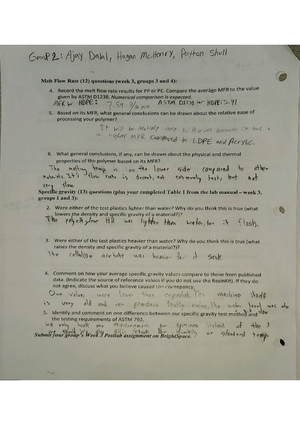 Group 2: Ajay Dalal, Hagan McHenry, Peyton Shull
Melt Flow Rate (12) questions (week 3, groups 3 and 4):
4. Record the melt flow rate results for PP or PE. Compare the average MFR to the value
given by ASTM D1238. Numerical comparison is expected.
MFR for HDPE: 7.59 ASTM D1238 for HDPE:
5. Based on its MFR, what general conclusions can be drawn about the relative ease of
processing your polymer?
It will be easy to process because it has a
higher MFR compared to LDPE and Acrylic.
6. What general conclusions, if any, can be drawn about the physical and thermal
properties of the polymer based on its MFR?
The melting temp is on the lower side compared to other
materials. It's flow rate is decent, not extremely fast, but not
very slow
Specific gravity (13) questions (plus your completed Table 1 from the lab manual – week 3,
groups 1 and 3):
2. Were either of the test plastics lighter than water? Why do you think this is true (what
lowers the density and specific gravity of a material?)?
The polyethylene HD was lighter than water, for it floats.
3. Were either of the test plastics heavier than water? Why do you think this is true (what
raises the density and specific gravity of a material?)?
The cellulose acetate was heavier for it sank
4. Comment on how your average specific gravity values compare to those from published
data. (Indicate the source of reference values if you do not use the RosiNER). If they do
not agree, discuss what you believe caused the discrepancy.
Our values were lower than expected. The machine itself
is very old and can produce
5. Identify and comment on one difference between our specific gravity test method and
the testing requirements of ASTM 792.
We only took one measurement per specimen instead of the 3
or standard temp.
Submit your group's Week 3 Postlab assignment on BrightSpace.